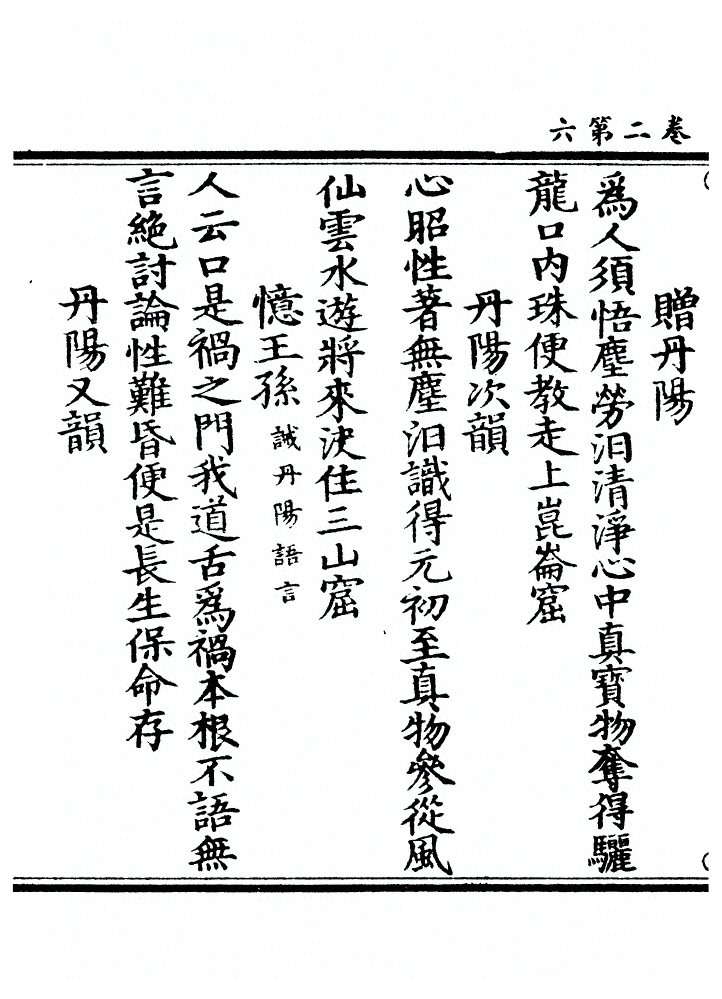 卷二第六
贈丹陽
爲人須悟塵勞汩清淨心中真寶物奪得驪
龍口內珠便教走上崑崙窟
丹陽次韻
心昭性著無塵汩識得元初至真物參從風
仙雲水遊將來決住三山窟
憶王孫 誡丹陽語言
人云口是禍之門我道舌爲禍本根不語無
言絶討論性難昏便是長生保命存
丹陽又韻